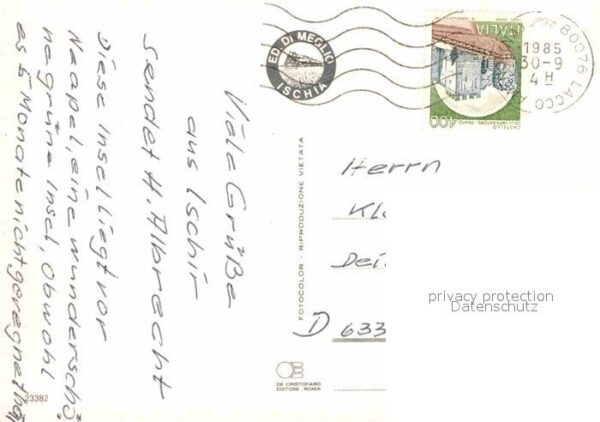 Viele Grüße
aus Ischia
sendet H. Albrecht
Diese Insel liegt vor
Neapel, eine wunderschö
ne grüne Insel, obwohl
es 5 Monate nicht geregnet hat
23382
ED. DI MEGLIO
ISCHIA
FOTOCOLOR - RIPRODUZIONE VIETATA
DE CRISTOFARO
EDITORE - ROMA
ITALIA
400
80076 LACCO
1985
30-9
4H
Herrn
Kl
Dei
D 633
privacy protection
Datenschutz